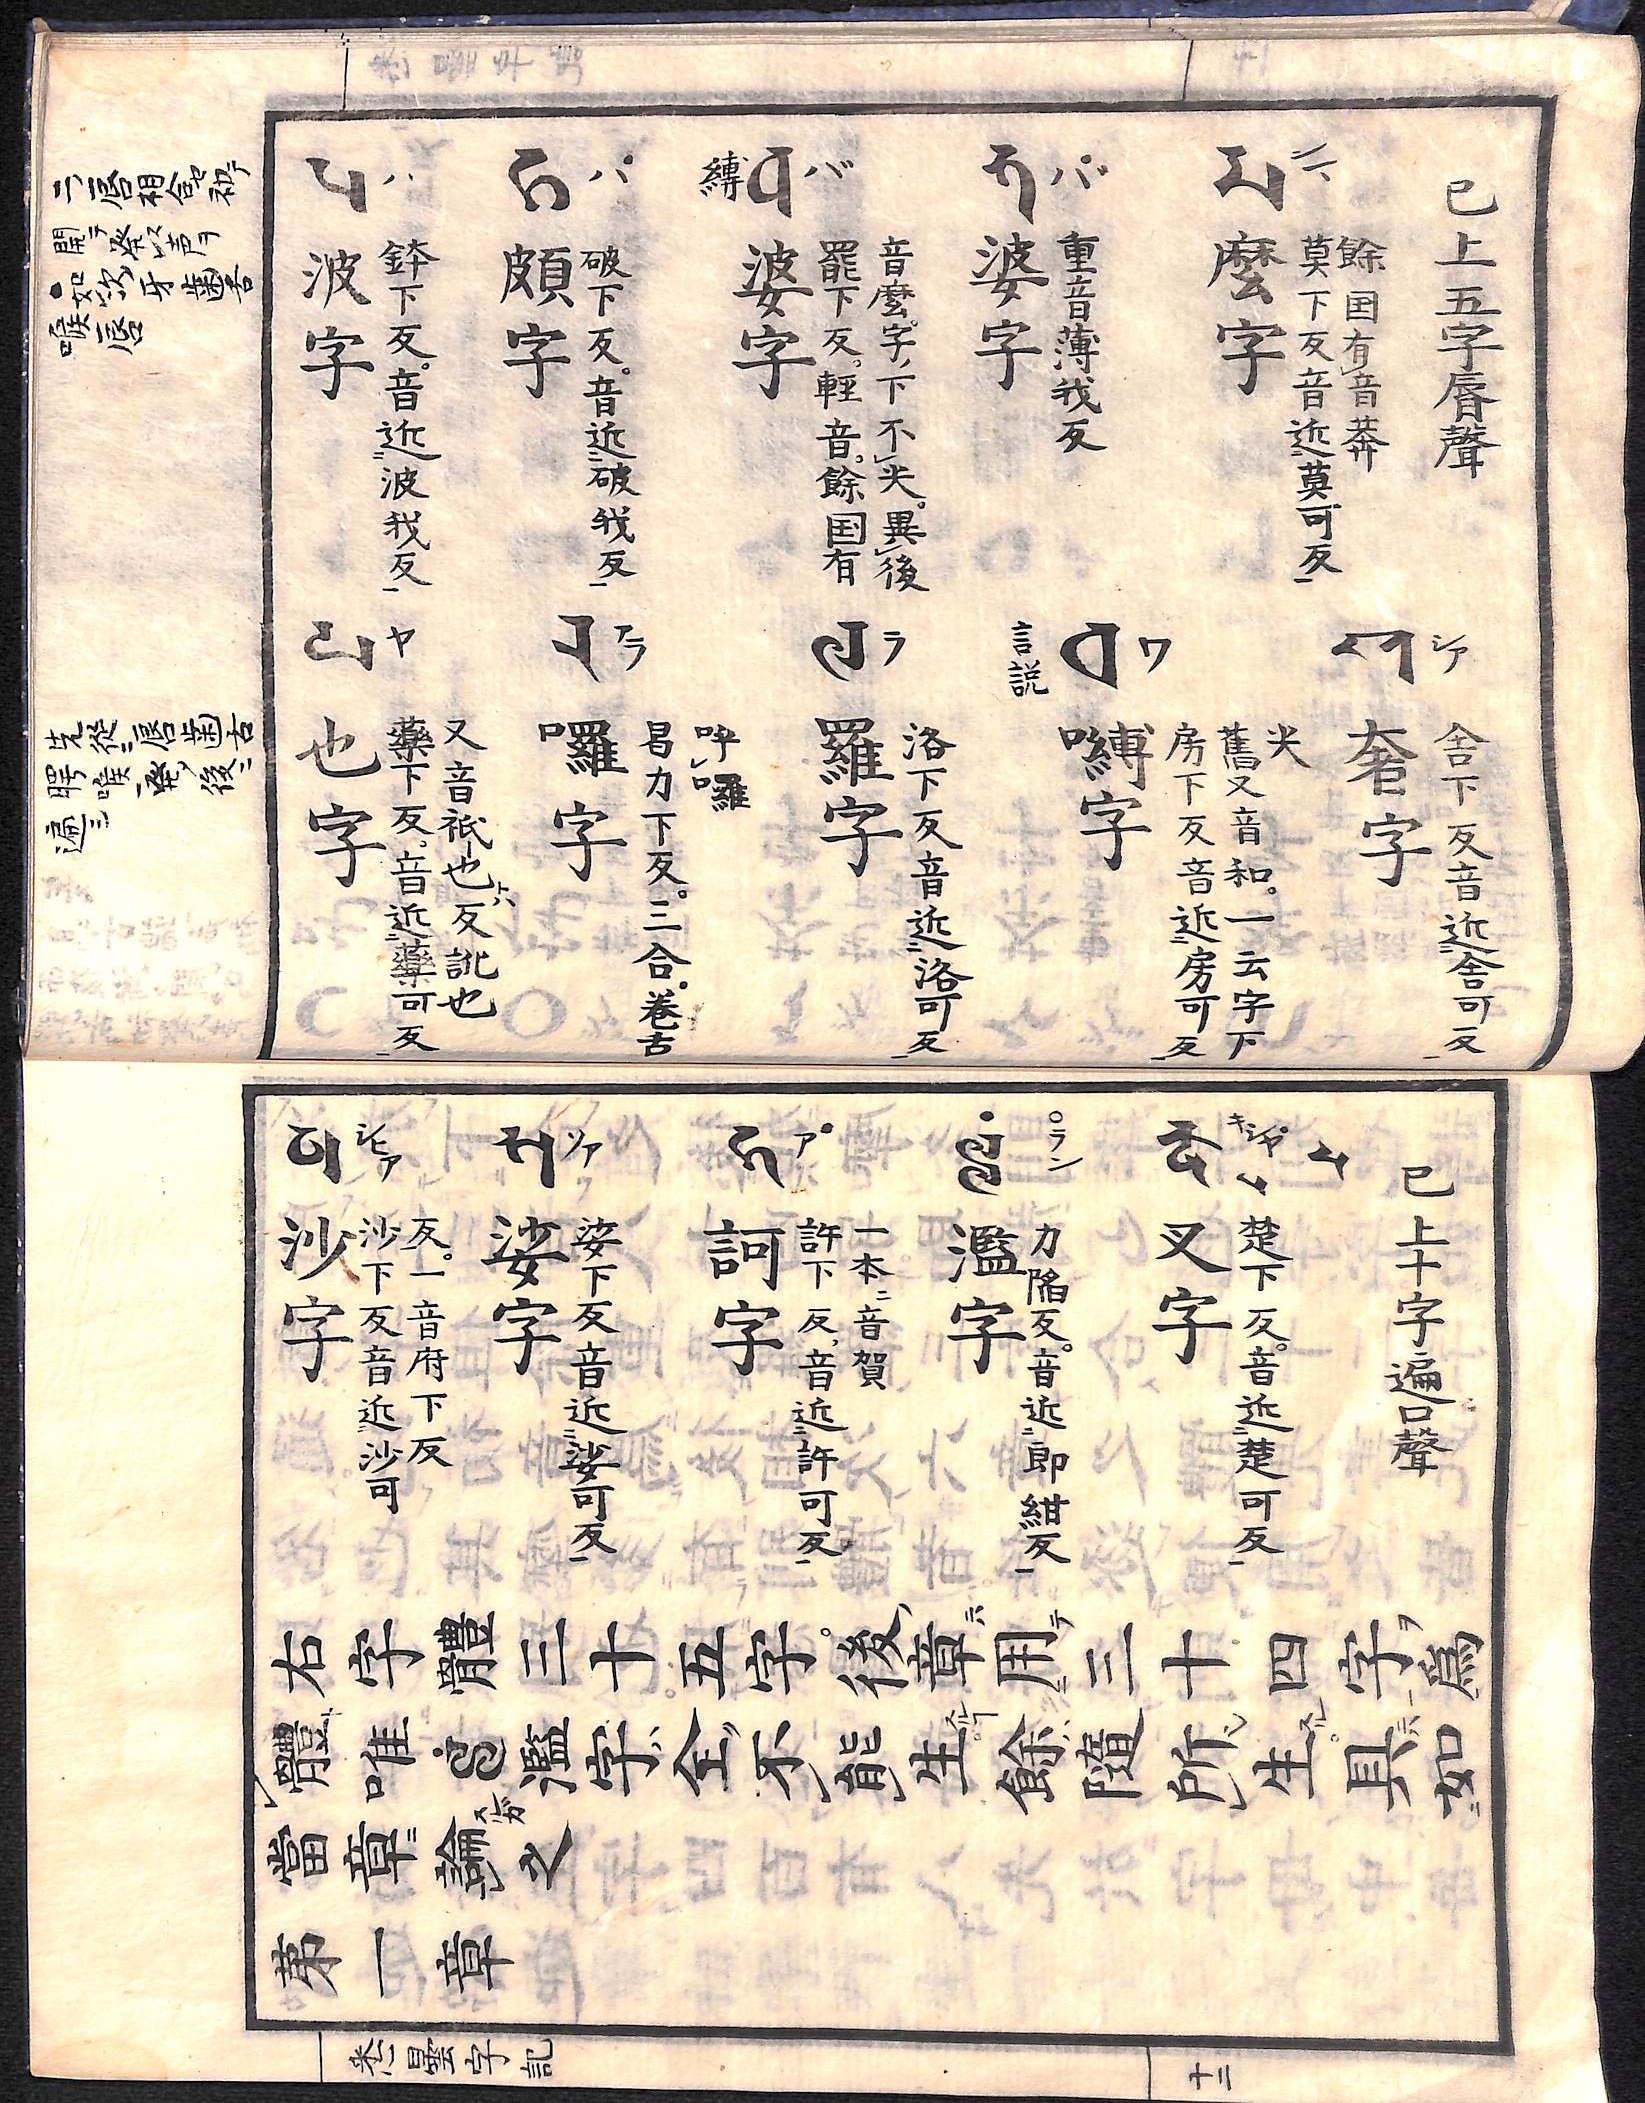 𑖢 ハ
波字 鉢下反。音近波我反
𑖣 ハ
頗字 破下反。音近破我反
𑖤 バ
嚩
婆字 罷下反。輕音。餘国有
音麼。字下不尖。異後
𑖥 バ
婆字 重音薄我反
𑖦 マ
麼字 莫下反音近莫可反
餘国有音莽
已上五字脣聲
𑖧 ヤ
也字 藥下反。音近藥可反
又音祇也反訛也
𑖨 アラ
囉字 曷力下反。三合。卷舌
呼囉
𑖩 ラ
羅字 洛下反音近洛可反
𑖪 ワ
言説
嚩字 房下反音近房可反
舊又音和。一云字下
尖
𑖫 シア
奢字 舍下反音近舍可反
二唇相合セ初テ
開テ發ス以声ヲ
如次牙齒舌
喉唇
先從唇齒舌
腭喉發後ニ
遍ニ
𑖬 シヒア
沙字 沙下反音近沙可
反。一音府下反
𑖭 ソア
娑字 娑下反音近娑可反
𑖮 ア
訶字 許下反。音近許可反
一本ニ音賀
𑖩𑖿𑖩𑖽 ラン
濫字 力陷反。音近郎紺反
𑖎𑖿𑖬 キシヤ
叉字 楚下反。音近楚可反
已上十字遍口聲
右字體三十五字。後章用テ三十四字ヲ爲
體唯𑖩𑖿𑖩𑖽濫字全不能生餘隨所生具如
當章ニ論之
第一章
悉曇字記
十三